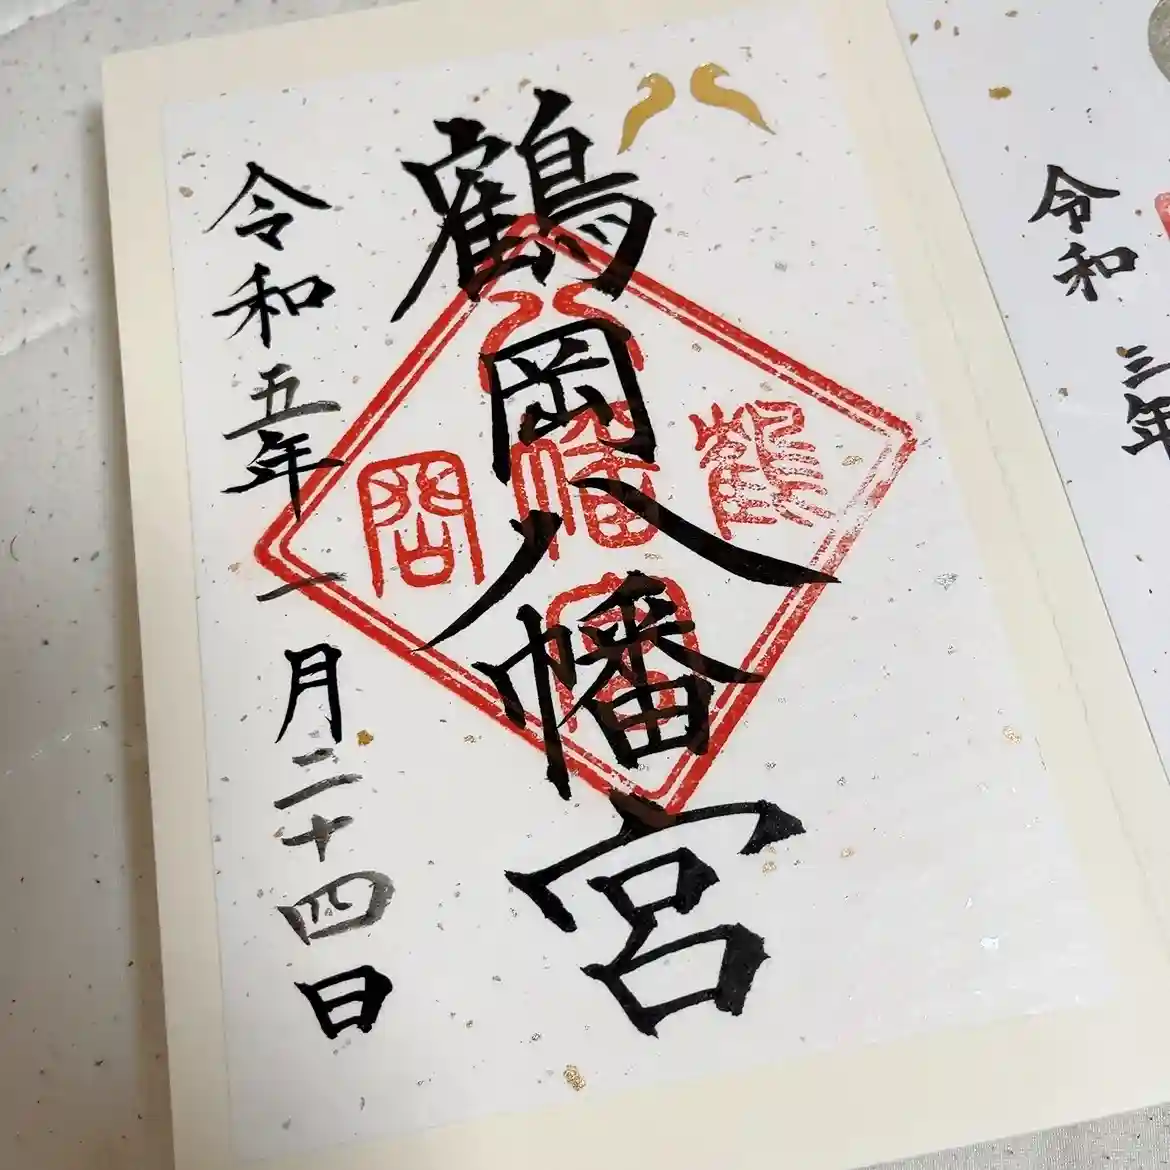 鶴岡八幡宮
令和五年一月二十四日
鶴
八幡宮
岡
令和三年